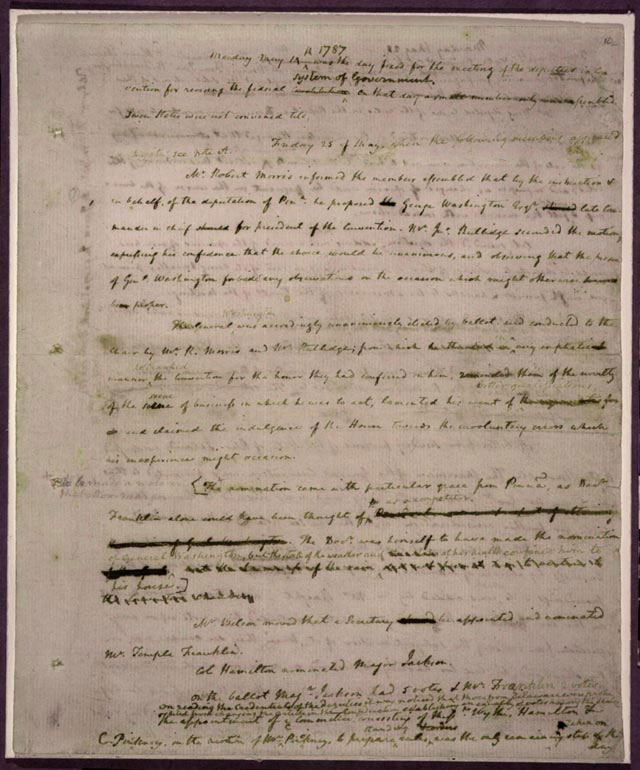 Monday May 14th 1787 was the day fixed for the meeting of the deputies in Con
vention for revising the federal system of Government. On that day a small number only had assembled.
Seven States were not convened till,
Friday 25 of May, when the following members appeared
see note A.
Mr Robert Morris informed the members assembled that by the instruction &
in behalf, of the deputation of Pena. he proposed George Washington Esqr. late Com
mander in chief for president of the Convention. Mr. Jno. Rutlidge seconded the motion;
expressing his confidence that the choice would be unanimous, and observing that the presence
of Genl. Washington forbade any observations on the occasion which might otherwise
be proper.
General was accordingly unanimously elected by ballot, and conducted to the
chair by Mr. R. Morris and Mr. Rutlidge; from which in a very emphatic
manner, he thanked the Convention for the honor they had conferred on him, reminded them of the novelty
of the scene of business in which he was to act, lamented his want of better qualifications,
and claimed the indulgence of the House towards the involuntary errors which
his inexperience might occasion.
[The nomination came with particular grace from Penna, as Docr.
Franklin alone could have been thought of as a competitor.
The Docr. was himself to have made the nomination
of General Washington, but the state of the weather and of his health confined him to
his house.]
Mr Wilson moved that a Secretary be appointed, and nominated
Mr. Temple Franklin.
Col Hamilton nominated Major Jackson.
On the ballot Majr. Jackson had 5 votes & Mr. Franklin 2 votes.
On reading the Credentials of the deputies it was noticed that those from Delaware were prohibited
the appointment of a Committee consisting of Mr. Wythe, Hamilton &
C. Pinkney, on the motion of Mr. Pinkney, to prepare standing rules, was the only remaining step taken on this
day.